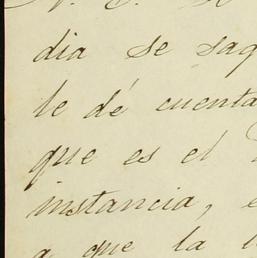 dia se saq
le dé cuenta
que es el
instancia, e
a que la